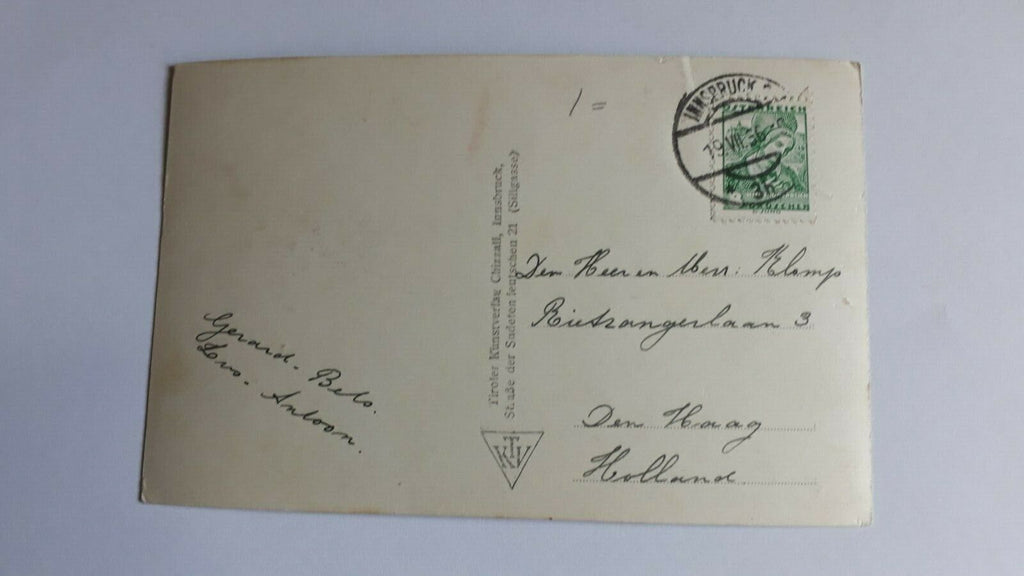 1 =
INNSBRUCK
19.VII.36
3h
ÖSTERREICH
Tiroler Kunstverlag Chizzali, Innsbruck,
Straße der Sudetendeutschen 21 (Sillgasse)
TKV
Den Heer en Mevr: Klomp
Rietzangerlaan 3
Den Haag
Holland
Gerard. Bets.
Antoon.